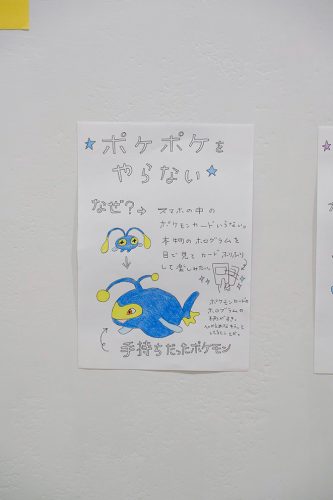 ポケポケを
やらない
なぜ?→ スマホの中の
ポケモンカードいらない。
本物のホログラムを
目で見て カードふりふり
して楽しみたい
ポケモンカードの
ホログラムの
手持ちだったポケモン